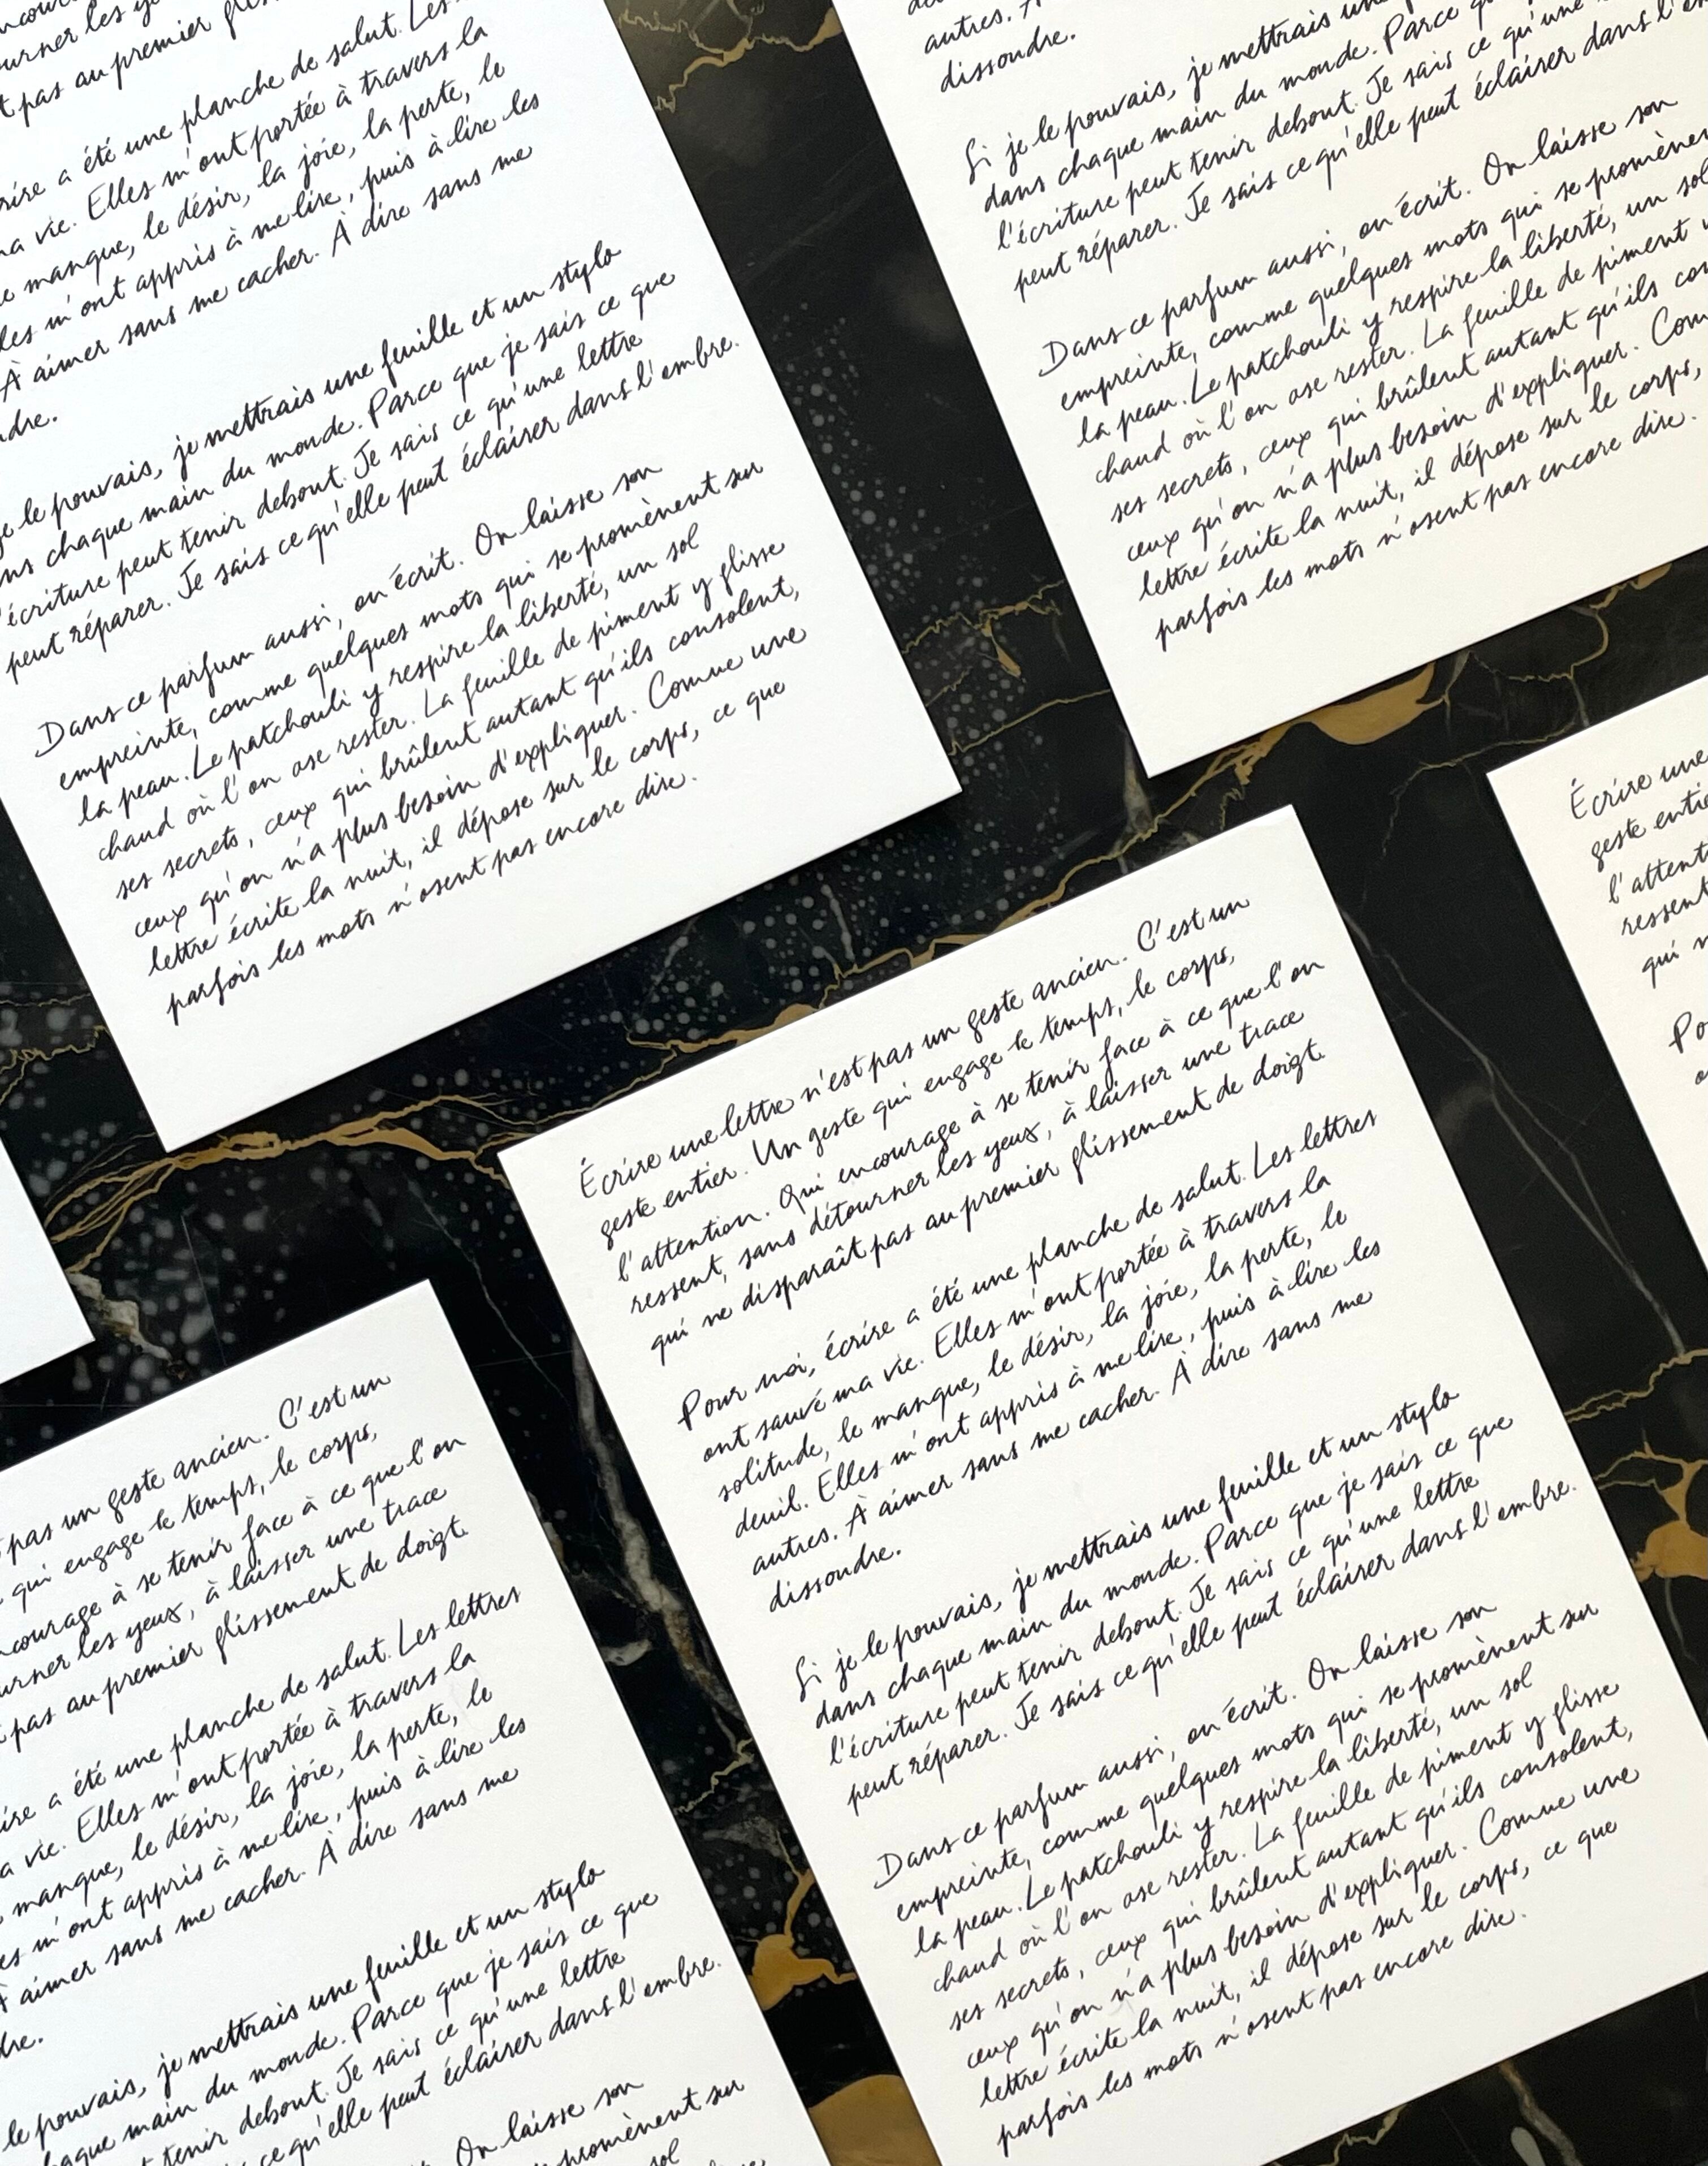 urner les ye
t pas au premier
rire a été une planche de salut. Les
na vie. Elles m'ont portée à travers la
e manque, le désir, la joie, la perte, le
lles m'ont appris à me lire, puis à lire les
À aimer sans me cacher. À dire sans me
dre.
je le pouvais, je mettrais une feuille et un stylo
ns chaque main du monde. Parce que je sais ce que
'écriture peut tenir debout. Je sais ce qu'une lettre
peut réparer. Je sais ce qu'elle peut éclairer dans l'ombre.
Dans ce parfum aussi, on écrit. On laisse son
empreinte, comme quelques mots qui se promènent sur
la peau. Le patchouli y respire la liberté, un sol
chaud où l'on ose rester. La feuille de piment y glisse
ses secrets, ceux qui brûlent autant qu'ils consolent,
ceux qu'on n'a plus besoin d'expliquer. Comme une
lettre écrite la nuit, il dépose sur le corps, ce que
parfois les mots n'osent pas encore dire.
autres. À
dissoudre.
Si je le pouvais, je mettrais une
dans chaque main du monde. Parce q
l'écriture peut tenir debout. Je sais ce qu'une
peut réparer. Je sais ce qu'elle peut éclairer dans l'o
Dans ce parfum aussi, on écrit. On laisse son
empreinte, comme quelques mots qui se promènen
la peau. Le patchouli y respire la liberté, un sol
chaud où l'on ose rester. La feuille de piment y
ses secrets, ceux qui brûlent autant qu'ils con
ceux qu'on n'a plus besoin d'expliquer. Com
lettre écrite la nuit, il dépose sur le corps,
parfois les mots n'osent pas encore dire.
Écrire une
geste entie
l'attent
ressent
qui n
Po
Écrire une lettre n'est pas un geste ancien. C'est un
geste entier. Un geste qui engage le temps, le corps,
l'attention. Qui encourage à se tenir face à ce que l'on
ressent, sans détourner les yeux, à laisser une trace
qui ne disparaît pas au premier glissement de doigt.
Pour moi, écrire a été une planche de salut. Les lettres
ont sauvé ma vie. Elles m'ont portée à travers la
solitude, le manque, le désir, la joie, la perte, le
deuil. Elles m'ont appris à me lire, puis à lire les
autres. À aimer sans me cacher. À dire sans me
dissoudre.
Si je le pouvais, je mettrais une feuille et un stylo
dans chaque main du monde. Parce que je sais ce que
l'écriture peut tenir debout. Je sais ce qu'une lettre
peut réparer. Je sais ce qu'elle peut éclairer dans l'ombre.
Dans ce parfum aussi, on écrit. On laisse son
empreinte, comme quelques mots qui se promènent sur
la peau. Le patchouli y respire la liberté, un sol
chaud où l'on ose rester. La feuille de piment y glisse
ses secrets, ceux qui brûlent autant qu'ils consolent,
ceux qu'on n'a plus besoin d'expliquer. Comme une
lettre écrite la nuit, il dépose sur le corps, ce que
parfois les mots n'osent pas encore dire.
pas un geste ancien. C'est un
qui engage le temps, le corps,
ncourage à se tenir face à ce que l'on
urner les yeux, à laisser une trace
t pas au premier glissement de doigt.
ire a été une planche de salut. Les lettres
a vie. Elles m'ont portée à travers la
manque, le désir, la joie, la perte, le
es m'ont appris à me lire, puis à lire les
À aimer sans me cacher. À dire sans me
dre.
le pouvais, je mettrais une feuille et un stylo
haque main du monde. Parce que je sais ce que
t tenir debout. Je sais ce qu'une lettre
ce qu'elle peut éclairer dans l'ombre.
On laisse son
promènent sur
sol